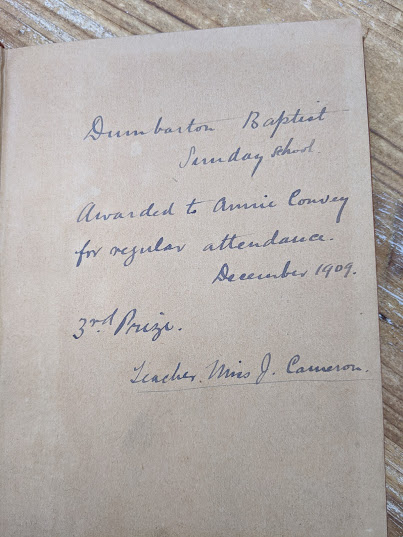 Dumbarton Baptist
Sunday School.
Awarded to Annie Convey
for regular attendance.
December 1909.
3rd Prize.
Teacher. Miss J. Cameron.